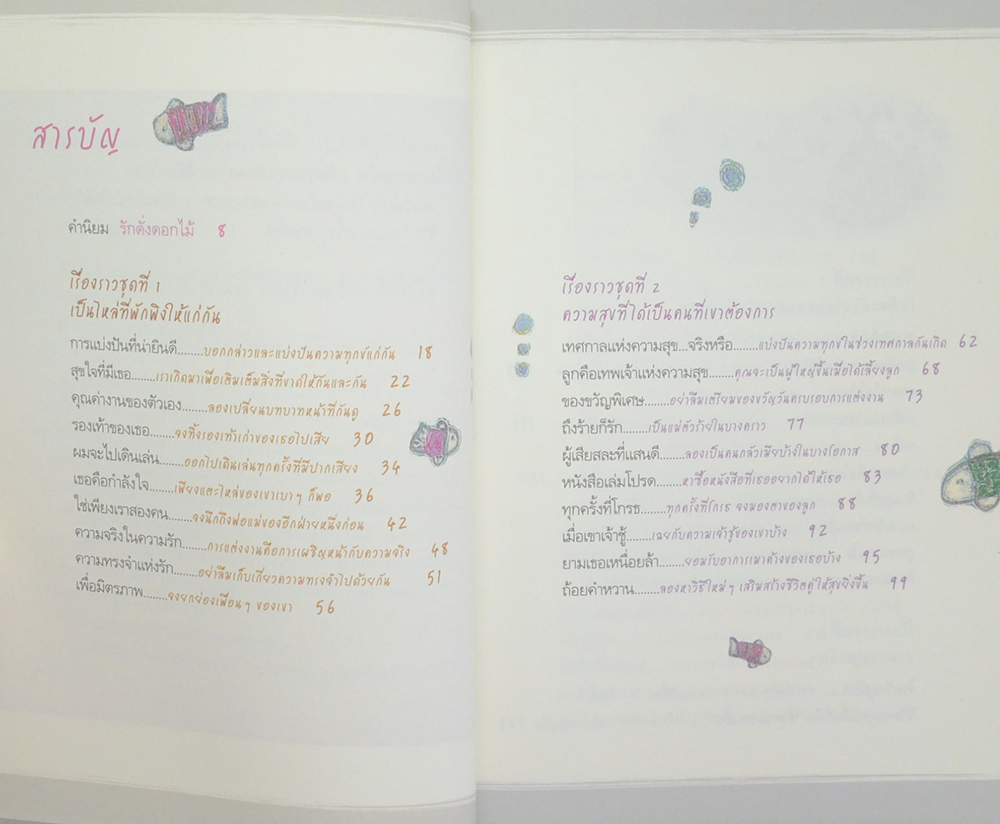 สารบัญ
คำนิยม รักดั่งดอกไม้ 8
เรื่องราวชุดที่ 1
เป็นไหล่ที่พักพิงให้แก่กัน
การแบ่งปันที่น่ายินดี.......บอกกล่าวและแบ่งปันความทุกข์แก่กัน 18
สุขใจที่มีเธอ.......เราเกิดมาเพื่อเติมเต็มสิ่งที่ขาดให้กันและกัน 22
คุณค่างานของตัวเอง.......ลองเปลี่ยนบทบาทหน้าที่กันดู 26
รองเท้าของเธอ.......จงทิ้งรองเท้าเก่าของเธอไปเสีย 30
ผมจะไปเดินเล่น.......ออกไปเดินเล่นทุกครั้งที่มีปากเสียง 34
เธอคือกำลังใจ.......เพียงแตะไหล่ของเขาเบาๆ ก็พอ 36
ใช่เพียงเราสองคน.......จงนึกถึงพ่อแม่ของอีกฝ่ายหนึ่งก่อน 42
ความจริงในความรัก.......การแต่งงานคือการเผชิญหน้ากับความจริง 48
ความทรงจำแห่งรัก.......อย่าลืมเก็บเกี่ยวความทรงจำไปด้วยกัน 51
เพื่อมิตรภาพ.......จงยกย่องเพื่อนๆ ของเขา 56
เรื่องราวชุดที่ 2
ความสุขที่ได้เป็นคนที่เขาต้องการ
เทศกาลแห่งความสุข...จริงหรือ.......แบ่งปันความทุกข์ในช่วงเทศกาลกันเถิด 62
ลูกคือเทพเจ้าแห่งความสุข.......คุณจะเป็นผู้ใหญ่ขึ้นเมื่อได้เลี้ยงลูก 68
ของขวัญพิเศษ.......อย่าลืมเตรียมของขวัญวันครบรอบการแต่งงาน 73
ถึงร้ายก็รัก.......เป็นแม่ตัวร้ายในบางคราว 77
ผู้เสียสละที่แสนดี.......ลองเป็นคนกลัวเมียบ้างในบางโอกาส 80
หนังสือเล่มโปรด.......หาซื้อหนังสือที่เธออยากได้ให้เธอ 83
ทุกครั้งที่โกรธ.......ทุกครั้งที่โกรธ จงมองตาของลูก 88
เมื่อเขาเจ้าชู้.......เฉยกับความเจ้าชู้ของเขาบ้าง 92
ยามเธอเหนื่อยล้า.......ยอมรับอาการเมาค้างของเธอบ้าง 95
ถ้อยคำหวาน.......ลองหาวิธีใหม่ๆ เสริมสร้างชีวิตคู่ให้สุขยิ่งขึ้น 99